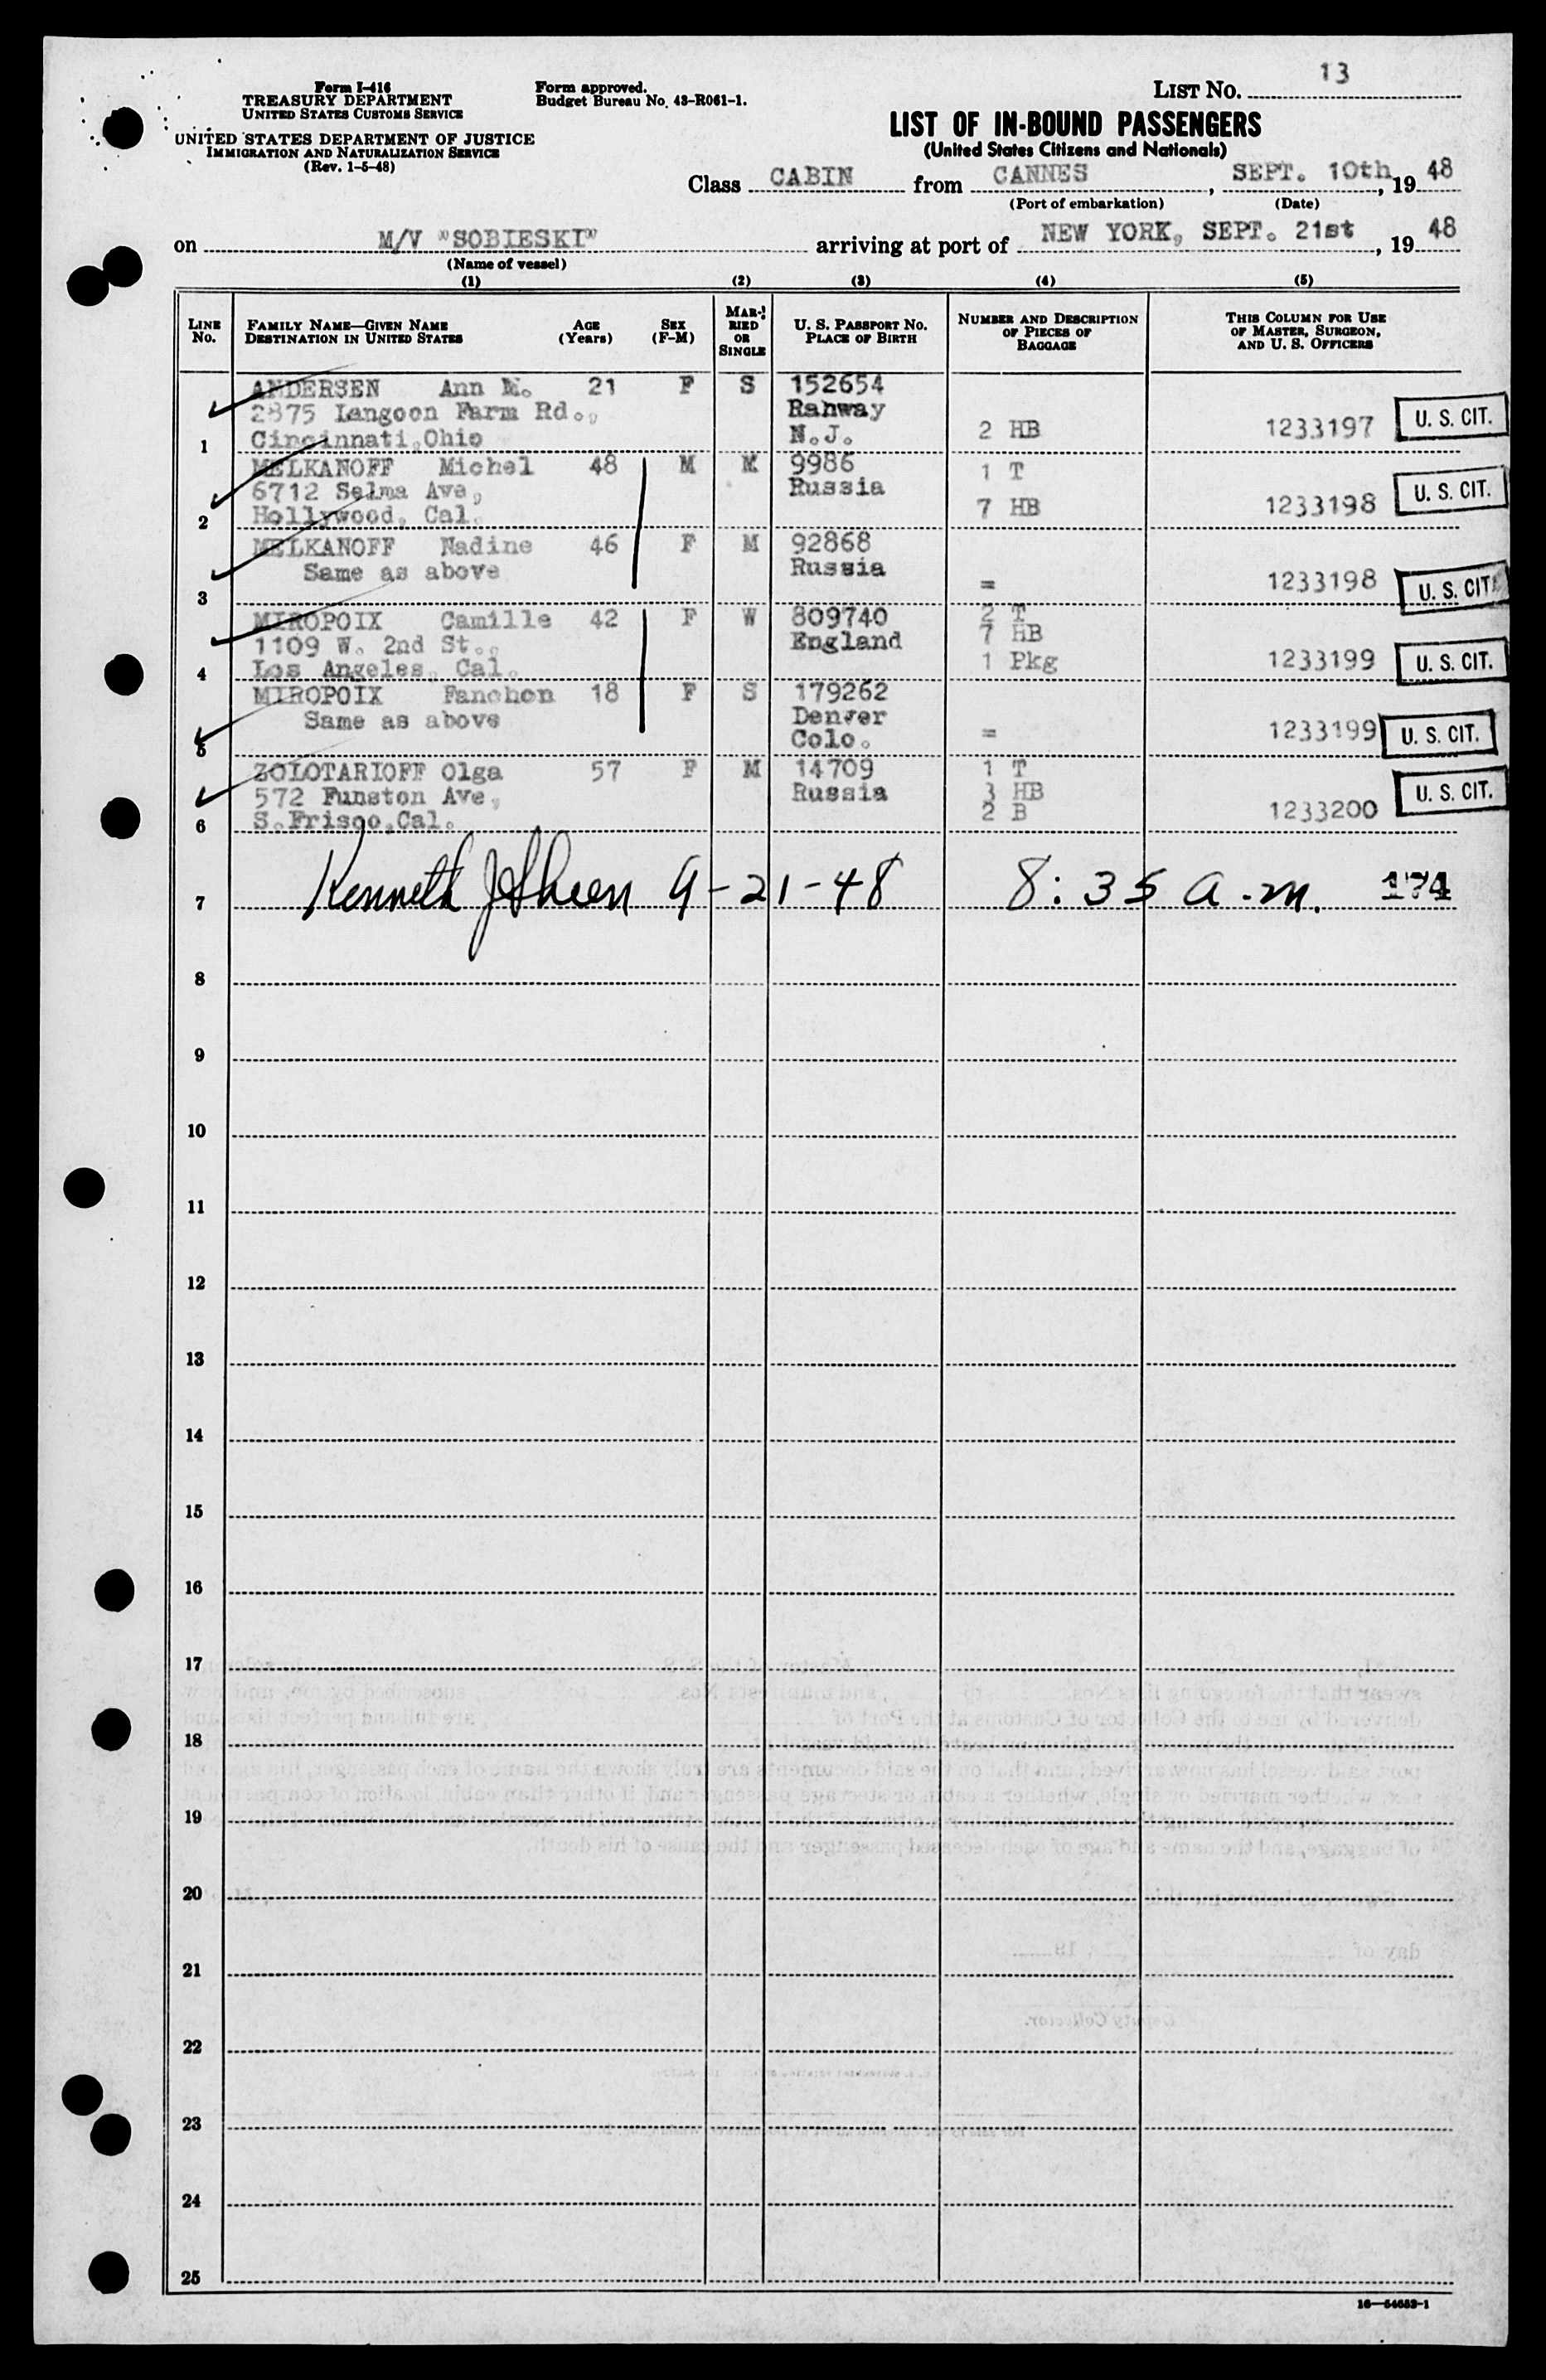 Form I-416
TREASURY DEPARTMENT
UNITED STATES CUSTOMS SERVICE
UNITED STATES DEPARTMENT OF JUSTICE
IMMIGRATION AND NATURALIZATION SERVICE
(Rev. 1-5-48)
Form approved.
Budget Bureau No. 43-R061-1.
LIST NO. 13
LIST OF IN-BOUND PASSENGERS
(United States Citizens and Nationals)
Class CABIN from CANNES, SEPT. 10th, 19 48
(Port of embarkation) (Date)
on M/V "SOBIESKI" arriving at port of NEW YORK, SEPT. 21st, 19 48
(Name of vessel)
(1) (2) (3) (4) (5)
LINE NO. FAMILY NAME—GIVEN NAME DESTINATION IN UNITED STATES AGE (Years) SEX (F-M) MARRIED OR SINGLE U. S. PASSPORT NO. PLACE OF BIRTH NUMBER AND DESCRIPTION OF PIECES OF BAGGAGE THIS COLUMN FOR USE OF MASTER, SURGEON, AND U. S. OFFICERS
ANDERSEN Ann M. 21 F S 152654
2875 Langoon Farm Rd., Rahway
1 Cincinnati, Ohio N.J. 2 HB 1233197 U. S. CIT.
MELKANOFF Michel 48 M M 9986 1 T
6712 Selma Ave, Russia
2 Hollywood, Cal. 7 HB 1233198 U. S. CIT.
MELKANOFF Nadine 46 F M 92868
Same as above Russia
3 = 1233198 U. S. CIT.
MIROPOIX Camille 42 F W 809740 2 T
1109 W. 2nd St., England 7 HB
4 Los Angeles, Cal. 1 Pkg 1233199 U. S. CIT.
MIROPOIX Fanchon 18 F S 179262
Same as above Denver
5 Colo. = 1233199 U. S. CIT.
ZOLOTARIOFF Olga 57 F M 14709 1 T
572 Funston Ave, Russia 3 HB
6 S.Frisco,Cal. 2 B 1233200 U. S. CIT.
7 Kenneth 9-21-48 8:35 a.m. 174
8
9
10
11
12
13
14
15
16
17
18
19
20
21
22
23
24
25
16—54683-1